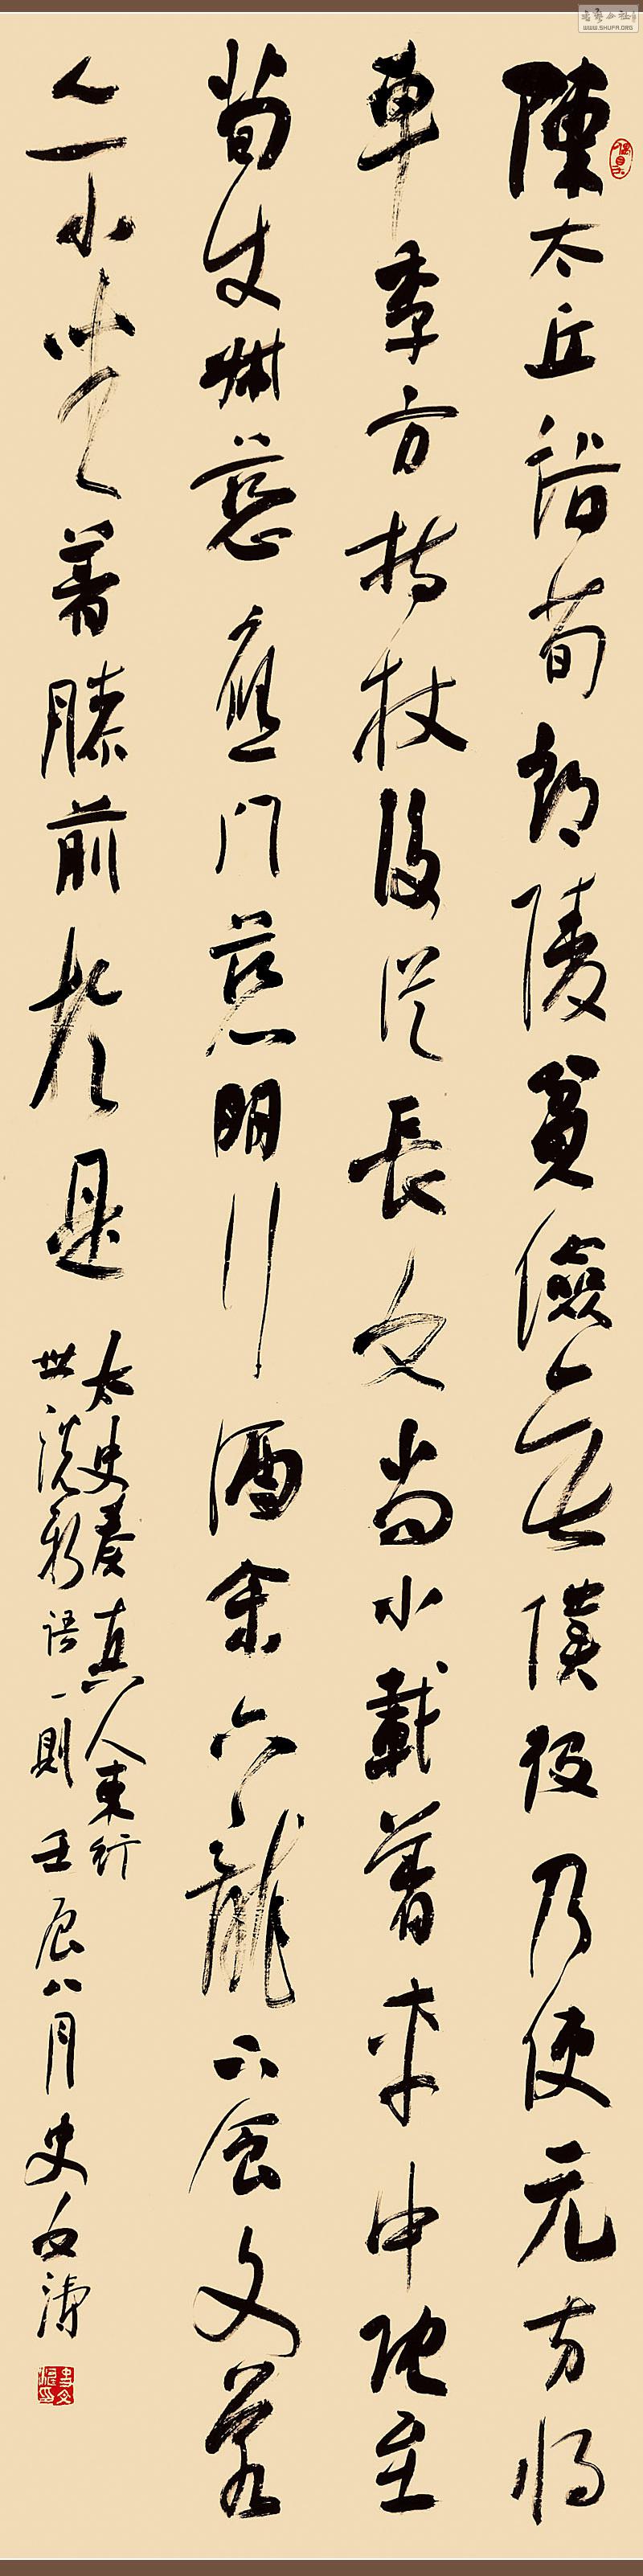 陳太丘詣荀朗陵貧儉無僕役乃使元方將
車季方持杖後從長文尚小載著車中既至
荀使叔慈應門慈明行酒余六龍下食文若
亦小坐著膝前於是
太史奏真人東行
世說新語一則壬辰八月史
WWW.SHUFA.ORG